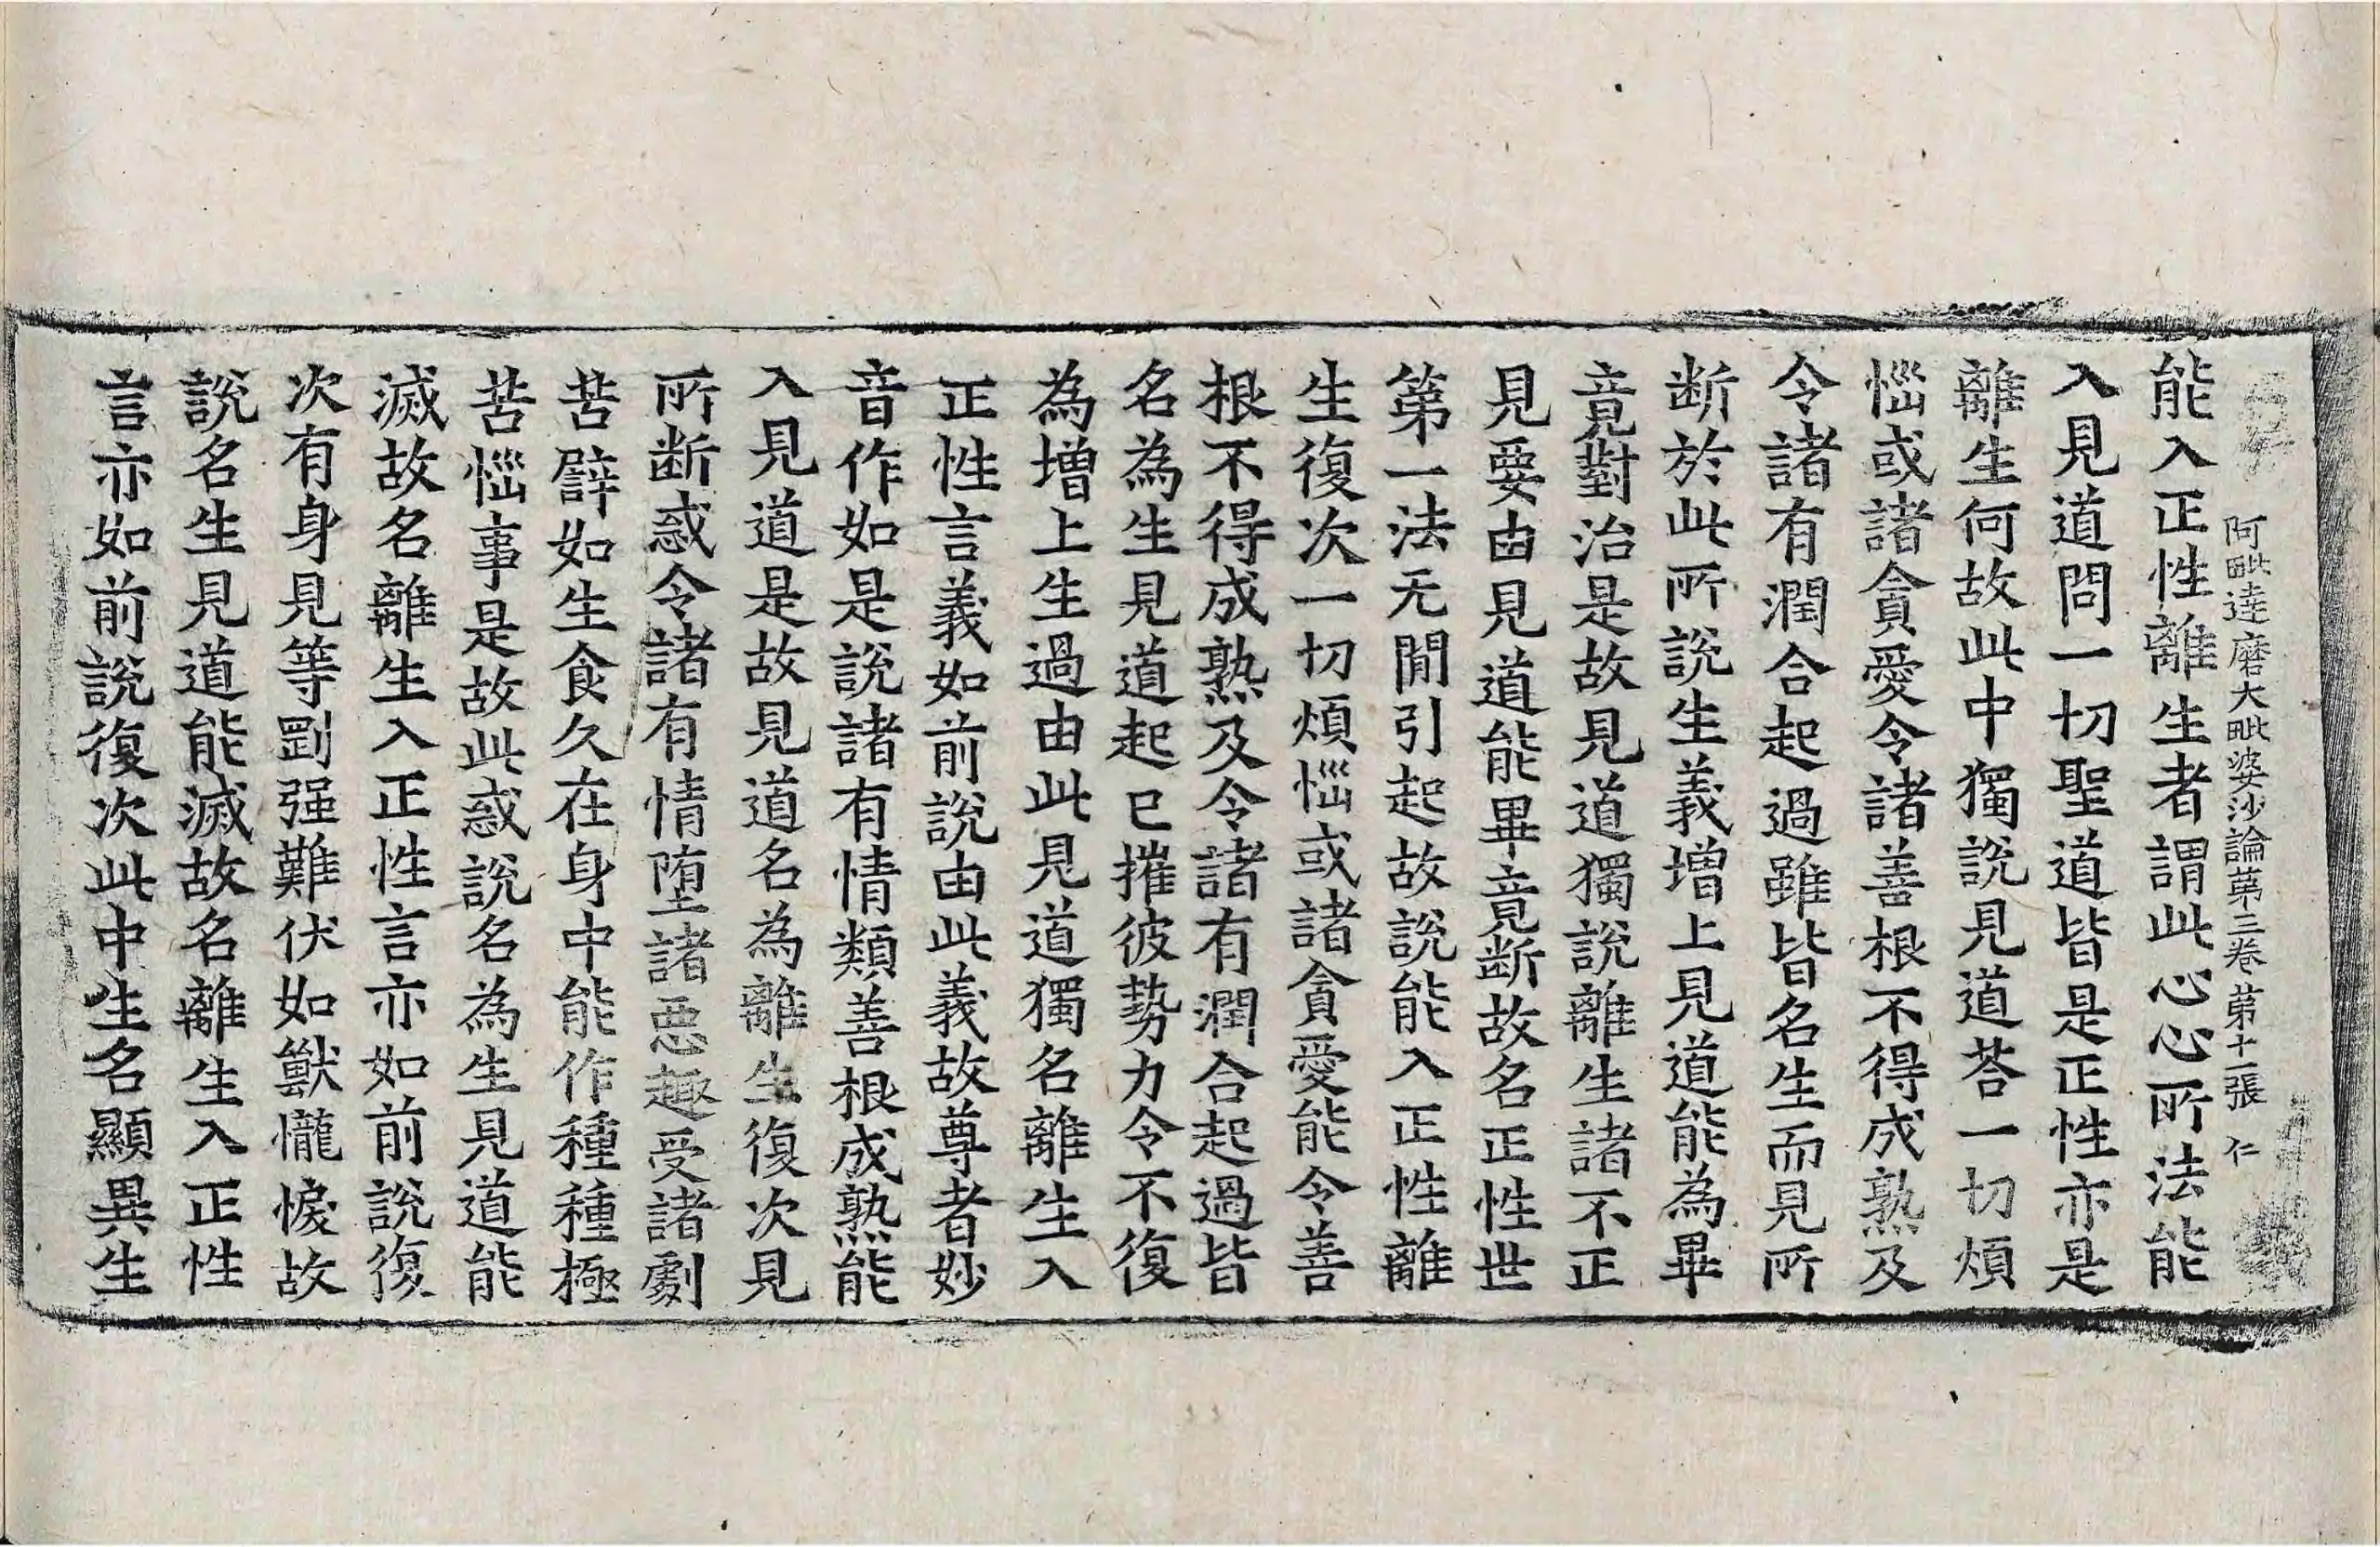 阿毗達磨大毗婆沙論第三卷 第十一張 仁
能入正性離生者謂此心心所法能
入見道問一切聖道皆是正性亦是
離生何故此中獨說見道荅一切煩
惱或諸貪愛令諸善根不得成熟及
令諸有潤合起過雖皆名生而見所
斷於此所說生義增上見道能為畢
竟對治是故見道獨說離生諸不正
見要由見道能畢竟斷故名正性世
第一法无間引起故說能入正性離
生復次一切煩惱或諸貪愛能令善
根不得成熟及令諸有潤合起過皆
名為生見道起已摧彼勢力令不復
為增上生過由此見道獨名離生入
正性言義如前說由此義故尊者妙
音作如是說諸有情類善根成熟能
入見道是故見道名為離生復次見
所斷惑令諸有情墮諸惡趣受諸劇
苦辟如生食久在身中能作種種極
苦惱事是故此惑說名為生見道能
滅故名離生入正性言亦如前說復
次有身見等剛强難伏如獸㦬悷故
說名生見道能滅故名離生入正性
言亦如前說復次此中生名顯異生